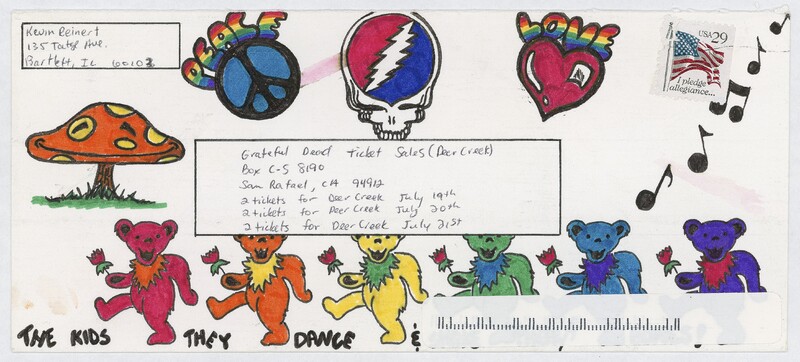 Kevin Reinert
135 Tatge Ave.
Bartlett, IL 60103
PEACE
LOVE
USA 29
I pledge
allegiance...
Grateful Dead Ticket Sales (Deer Creek)
Box C-S 8190
San Rafael, CA 94912
2 tickets for Deer Creek July 19th
2 tickets for Deer Creek July 20th
2 tickets for Deer Creek July 21st
THE KIDS THEY DANCE &